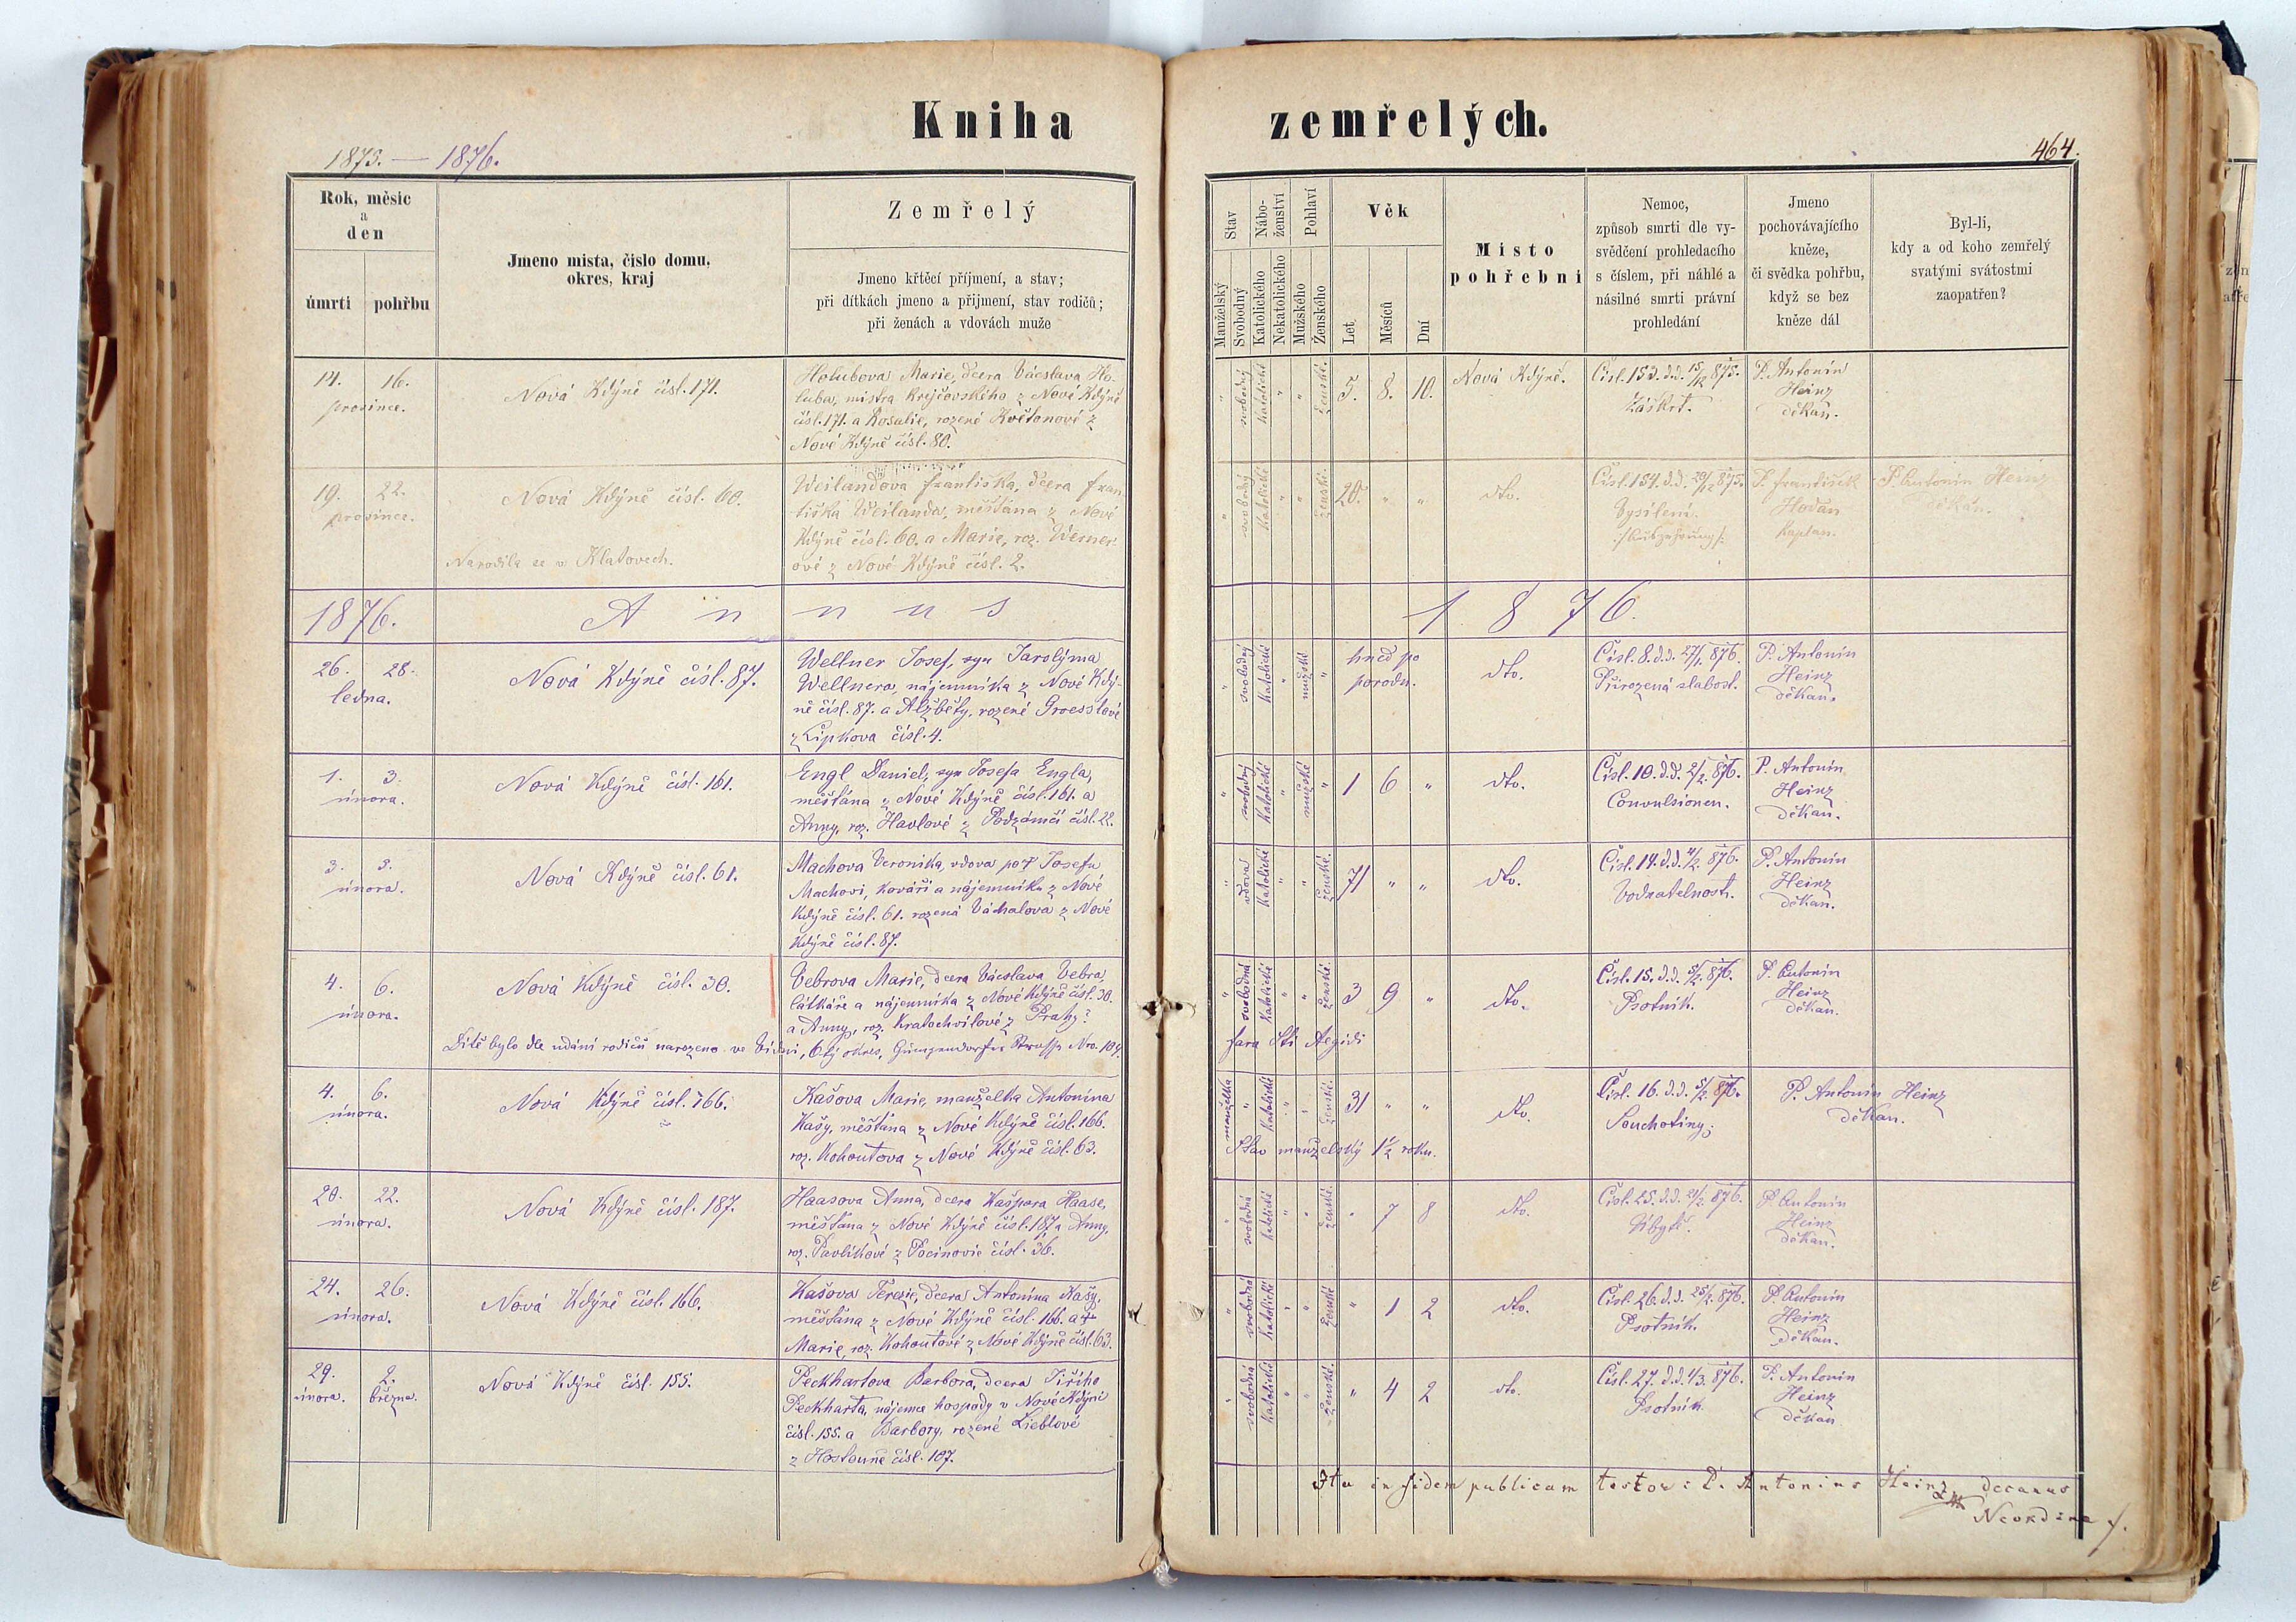 Kniha zemřelých.
1875. — 1876.
464.
Rok, měsíc
a
den
úmrtí
pohřbu
Jmeno místa, číslo domu,
okres, kraj
Zemřelý
Jmeno křtěcí příjmení, a stav;
při dítkách jmeno a přijmení, stav rodičů;
při ženách a vdovách muže
Stav
Manželský
Svobodný
Nábo-
ženství
Katolického
Nekatolického
Pohlaví
Mužského
Ženského
Věk
Let
Měsíců
Dní
Místo
pohřební
Nemoc,
způsob smrti dle vy-
svědčení prohledacího
s číslem, při náhlé a
násilné smrti právní
prohledání
Jmeno
pochovávajícího
kněze,
či svědka pohřbu,
když se bez
kněze dál
Byl-li,
kdy a od koho zemřelý
svatými svátostmi
zaopatřen?
14. 16.
prosince.
Nová Kdýně čísl. 171.
Holubova Marie, dcera Vácslava Ho-
luba, mistra krejčovského z Nové Kdýně
čísl. 171. a Rosalie, rozené Květonové z
Nové Kdýně čísl. 80.
" svobodný Katolické " " ženské. 5. 8. 10.
Nová Kdýně.
Čísl. 153. d.d. 15/12 875.
Záškrt.
P. Antonín
Heinz
děkan.
19. 22.
prosince.
Nová Kdýně čísl. 60.
Narodila se v Klatovech.
Weilandova Františka, dcera Fran-
tiška Weilanda, měšťana z Nové
Kdýně čísl. 60. a Marie, roz. Werner-
ové z Nové Kdýně čísl. 2.
" svobodný Katolické " " ženské. 20. " "
dto.
Čísl. 154. d.d. 20/12 875.
Vysílení.
P. František
Hodan
kaplan.
P. Antonín Heinz
děkan.
1876. Annus 1876.
26. 28.
ledna.
Nová Kdýně čísl. 87.
Wellner Josef, syn Jarolýma
Wellnera, nájemníka z Nové Kdý-
ně čísl. 87. a Alžběty, rozené Groesslové
z Lipkova čísl. 4.
" svobodný Katolické " mužské "
hned po
porodu.
dto.
Čísl. 8. d.d. 27/1. 876.
Přirozená slabost.
P. Antonín
Heinz
děkan.
1. 3.
února.
Nová Kdýně čísl. 161.
Engl Daniel, syn Josefa Engla,
měšťana z Nové Kdýně čísl. 161. a
Anny, roz. Havlové z Podzámčí čísl. 22.
" svobodný Katolické " mužské " 1 6 "
dto.
Čísl. 10. d.d. 2/2. 876.
Convulsionen.
P. Antonín
Heinz
děkan.
3. 5.
února.
Nová Kdýně čísl. 61.
Machova Veronika, vdova po † Josefu
Machovi, kováři a nájemníku z Nové
Kdýně čísl. 61. rozená Váchalova z Nové
Kdýně čísl. 87.
" vdova Katolické " " ženské. 71 " "
dto.
Čísl. 14. d.d. 4/2. 876.
Vodnatelnost.
P. Antonín
Heinz
děkan.
4. 6.
února.
Nová Kdýně čísl. 30.
Vebrova Marie, dcera Vácslava Vebra
látkáře a nájemníka z Nové Kdýně čísl. 30.
a Anny, roz. Kratochvílové z Prahy?
Dítě bylo dle udání rodičů narozeno ve Vídni, 6.tý okres, Gumpendorfer Strasse Nro. 109.
fara Sti Aegidi
" svobodná Katolické " " ženské. 3 9 "
dto.
Čísl. 15. d.d. 5/2. 876.
Psotník.
P. Antonín
Heinz
děkan.
4. 6.
února.
Nová Kdýně čísl. 166.
Kašova Marie, manželka Antonína
Kašy, měšťana z Nové Kdýně čísl. 166.
roz. Kohoutova z Nové Kdýně čísl. 63.
manželka " Katolické " " ženské. 31 " "
Stav manželský 1½ roku.
dto.
Čísl. 16. d.d. 5/2. 876.
Souchotiny.
P. Antonín Heinz
děkan.
20. 22.
února.
Nová Kdýně čísl. 187.
Haasova Anna, dcera Kašpara Haase,
měšťana z Nové Kdýně čísl. 187 a Anny,
roz. Pavlíkové z Pocinovic čísl. 36.
" svobodná Katolické " " ženské. " 7 8
dto.
Čísl. 25. d.d. 21/2. 876.
Úbytě.
P. Antonín
Heinz
děkan.
24. 26.
února.
Nová Kdýně čísl. 166.
Kašova Terezie, dcera Antonína Kašy,
měšťana z Nové Kdýně čísl. 166. a †
Marie, roz. Kohoutové z Nové Kdýně čísl. 63.
" svobodná Katolické " " ženské " 1 2
dto.
Čísl. 26. d.d. 25/2. 876.
Psotník.
P. Antonín
Heinz
děkan.
29. 2.
února. března.
Nová Kdýně čísl. 155.
Peckhartova Barbora, dcera Jiřího
Peckharta, nájemce hospody v Nové Kdýni
čísl. 155. a Barbory, rozené Lieblové
z Hostouně čísl. 107.
" svobodná Katolické " " ženské. " 4 2
dto.
Čísl. 27. d.d. 1/3. 876.
Psotník.
P. Antonín
Heinz
děkan
Ita in fidem publicam testor: P. Antonius Heinz decanus
Neokdinae